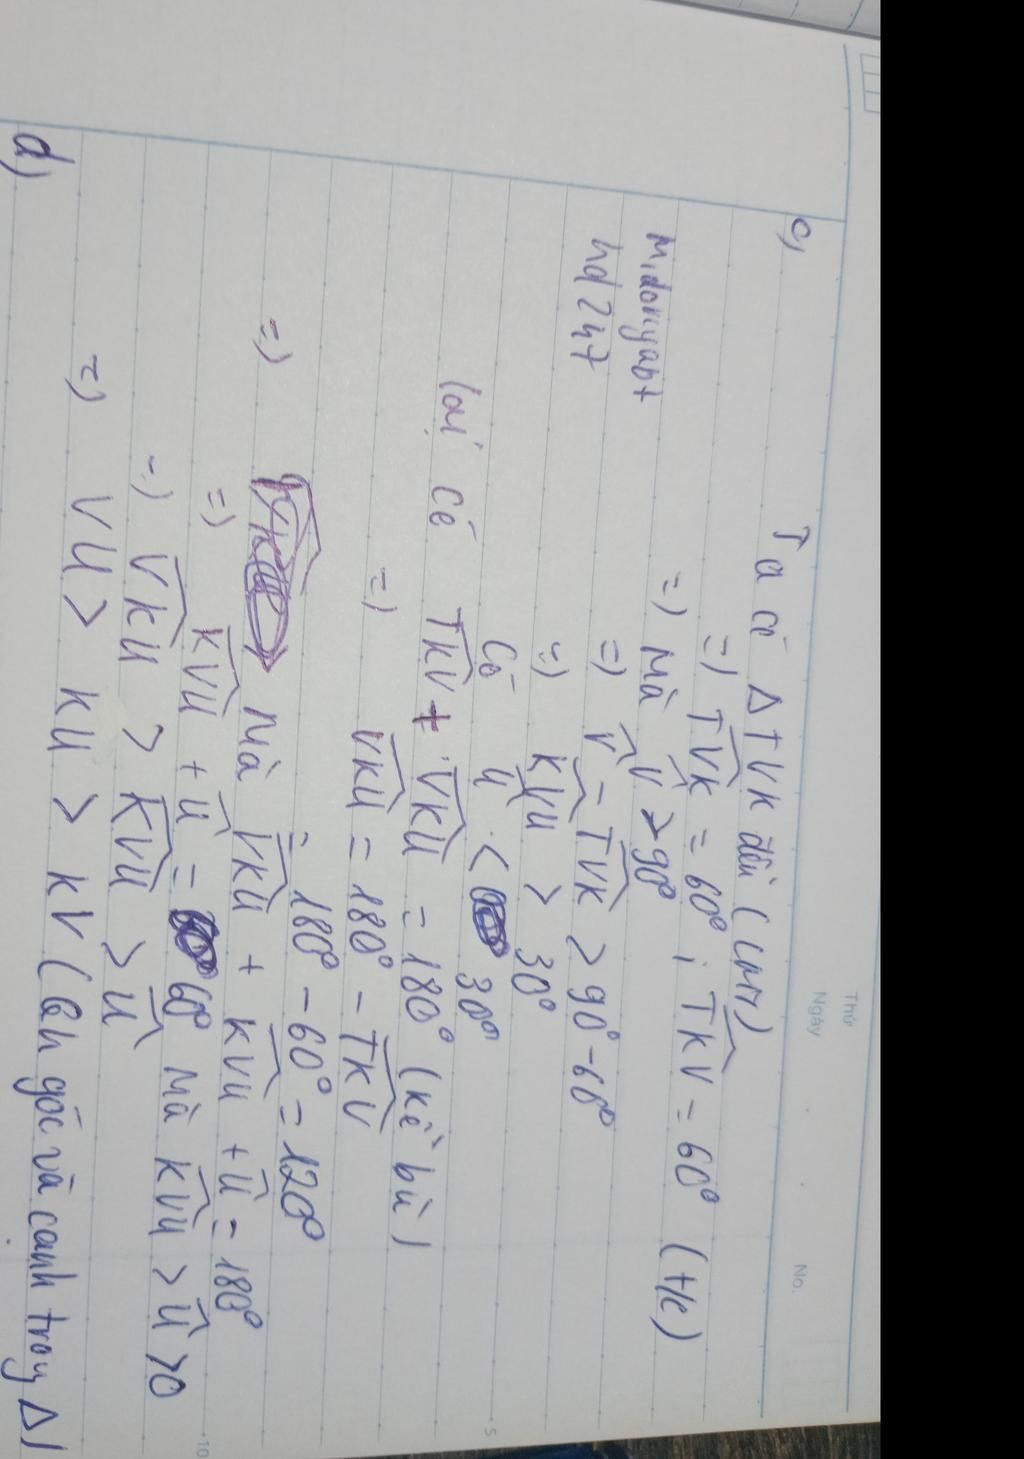 Thứ
Ngày
No.
c)
Ta có ΔTVK đều (cmt)
=) TVK = 60° ; TKV = 60° (t/c)
=) Mà V > 90°
midoriyabt
hd247
=) V - TVK > 90° - 60°
=) KVU > 30°
Có U < 30°
lại có TKV + VKU = 180° (kề bù)
=) VKU = 180° - TKV
= 180° - 60° = 120°
=) Mà VKU + KVU + U = 180°
=) KVU + U = 60° Mà KVU > U > 0
=) VKU > KVU > U
=) VU > KU > KV (qh góc và cạnh trong Δ)
d)
5
10